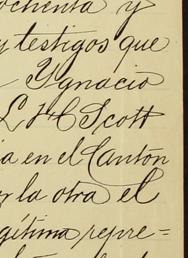 ochenta y
y testigos que
Ygnacio
L. H. C. Scott
ia en el Canton
y la otra el
gítima repre=